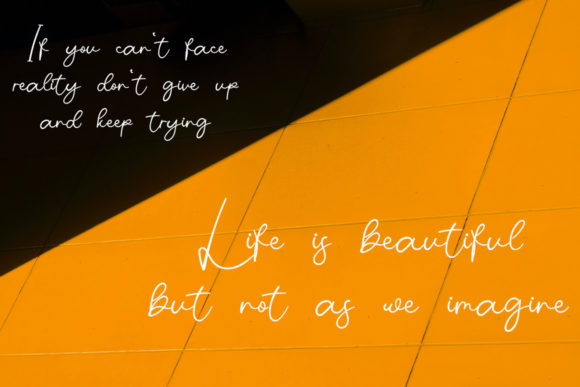 If you can't face
reality don't give up
and keep trying
Life is beautiful
but not as we imagine